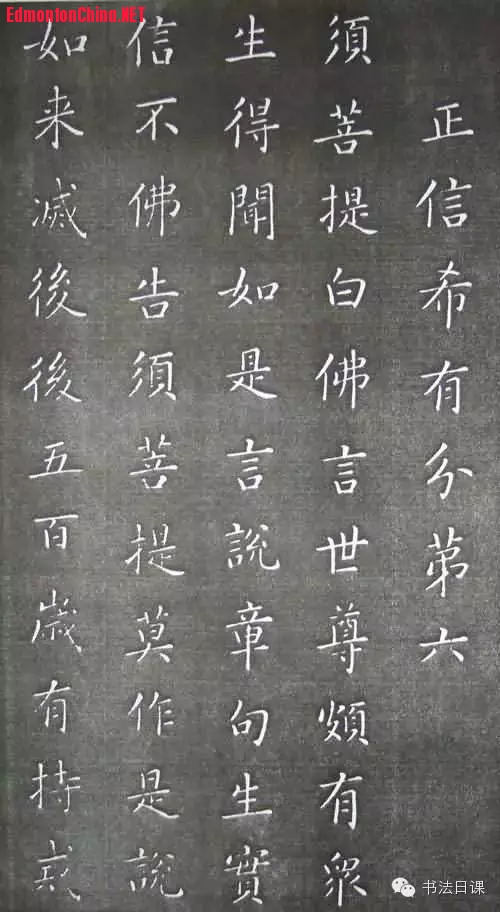 EdmontonChina.NET
正信希有分苐六
須菩提白佛言世尊頗有眾
生得聞如是言說章句生實
信不佛告須菩提莫作是說
如来滅後後五百歲有持戒
书法日课